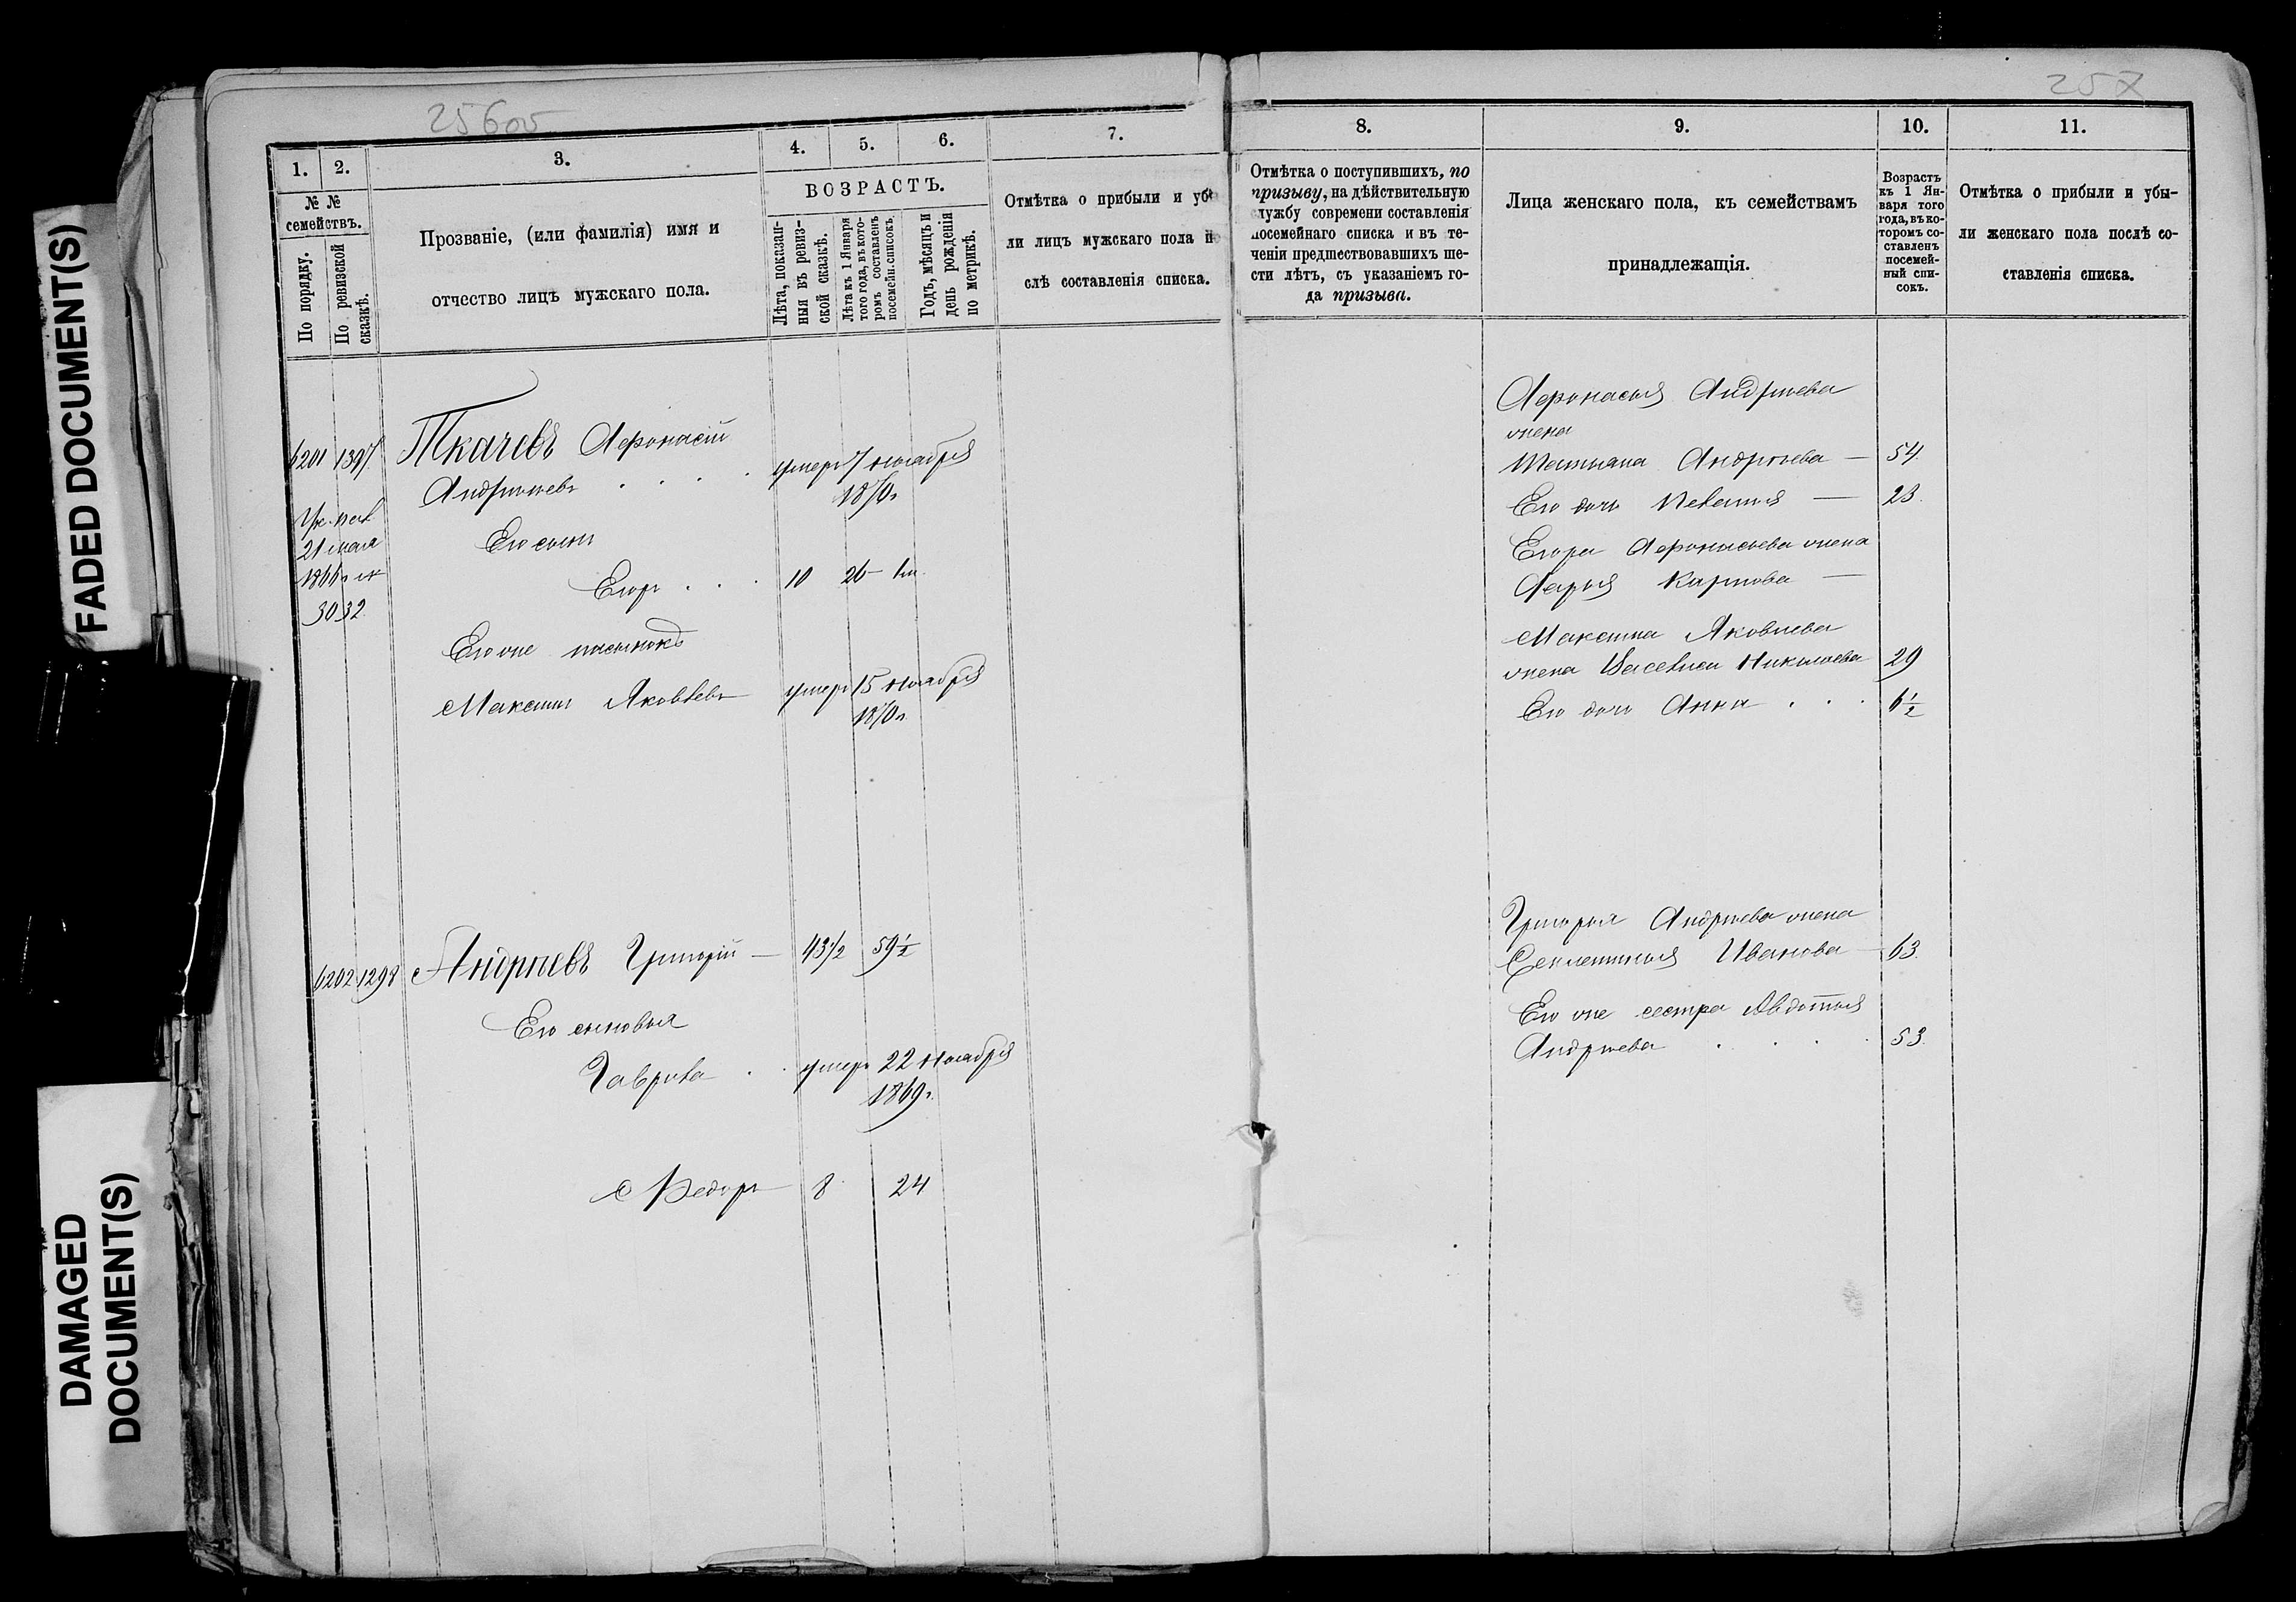 FADED DOCUMENT(S)
DAMAGED
DOCUMENT(S)
256об
1. 2. 3. 4. 5. 6. 7.
№ №
семействъ.
По порядку.
По ревизской
сказкѣ.
Прозваніе, (или фамилія) имя и
отчество лицъ мужскаго пола.
ВОЗРАСТЪ.
Лѣта, показан-
ныя въ ревиз-
ской сказкѣ.
Лѣта къ 1 Января
того года, въ кото-
ромъ составленъ
посемейн. списокъ.
Годъ, мѣсяцъ и
день рожденія
по метрикѣ.
Отмѣтка о прибыли и убы
ли лицъ мужскаго пола по
слѣ составленія списка.
6201 1397 Ткачевъ Афонасій
Андреевъ умеръ 7 ноября
1870г
21 мая
1866г
3032
Его сынъ
Егоръ 10 26
Его же пасынокъ
Максимъ Яковлевъ умеръ 15 ноября
1870г
6202 1298 Андреевъ Григорій — 43½ 59½
Его сыновья
Гаврила умеръ 22 ноября
1869г.
Федоръ 8 24
257
8. 9. 10. 11.
Отмѣтка о поступившихъ, по
призыву, на дѣйствительную
службу современи составленія
посемейнаго списка и въ те-
ченіи предшествовавшихъ ше-
сти лѣтъ, съ указаніемъ го-
да призыва.
Лица женскаго пола, къ семействамъ
принадлежащія.
Возрастъ
къ 1 Ян-
варя того
года, въ ко-
торомъ со-
ставленъ
посемей-
ный спи-
сокъ.
Отмѣтка о прибыли и убы-
ли женскаго пола послѣ со-
ставленія списка.
Афонасья Андреева
жена
Татьяна Андреева — 54
Его дочь — 23.
Егора Афонасьева жена
Дарья Карпова —
Максима Яковлева
жена Василиса Николаева 29
Его дочь Анна 6½
Григорья Андреева жена
Секлетинья Иванова — 63.
Его же сестра Авдотья
Андреева 53.